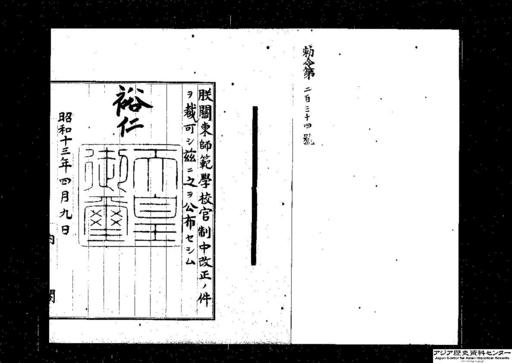 勅令第二百三十四號
朕關東師範學校官制中改正ノ件
ヲ裁可シ茲ニ之ヲ公布セシム
裕仁
天皇御璽
昭和十三年四月九日
内閣
アジア歴史資料センター
Japan Center for Asian Historical Records